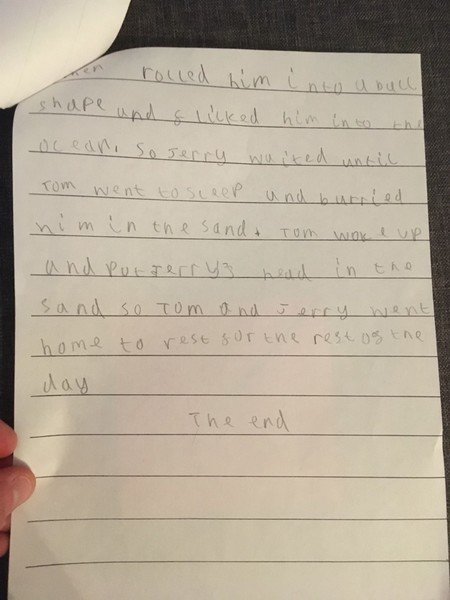 rolled him into a ball
shape and flicked him into the
ocean. so Jerry waited until
Tom went to sleep and burried
him in the sand. Tom woke up
and put Jerrys head in the
sand so Tom and Jerry went
home to rest for the rest of the
day
The end